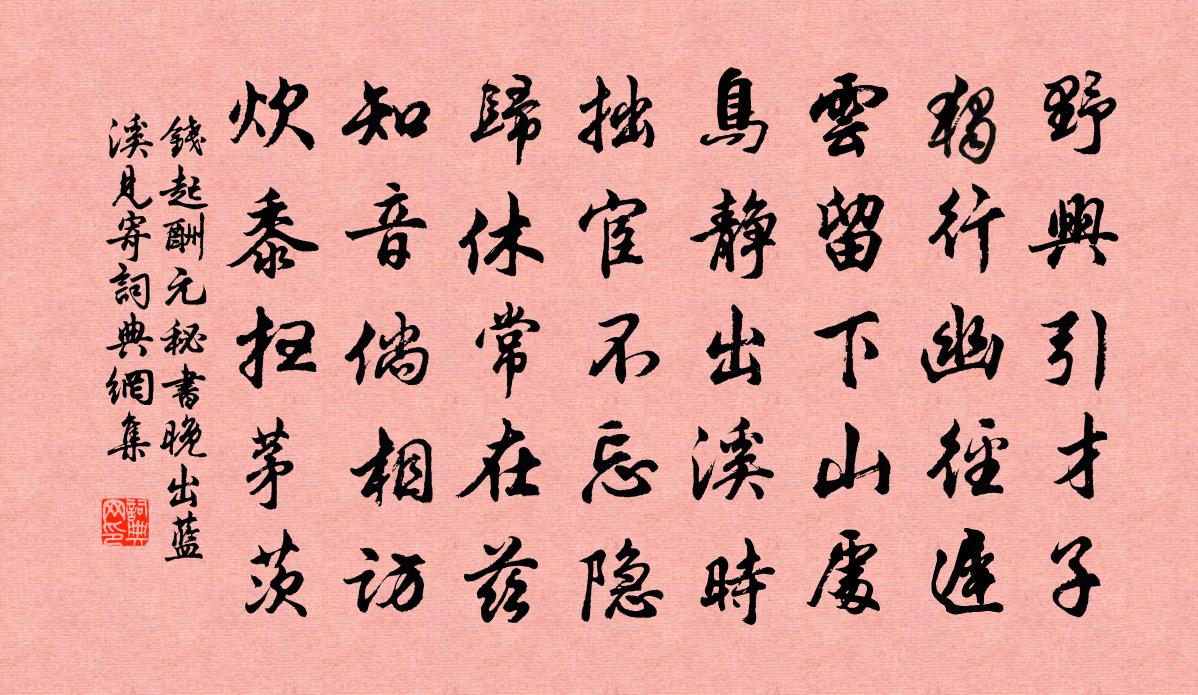 野興引才子
獨行幽徑遲
雲留下山處
鳥靜出溪時
拙宦不忘隐
歸休常在茲
知音倘相訪
炊黍掃茅茨
錢起酬元秘書晚出藍
溪見寄詞典網集
詞典網印